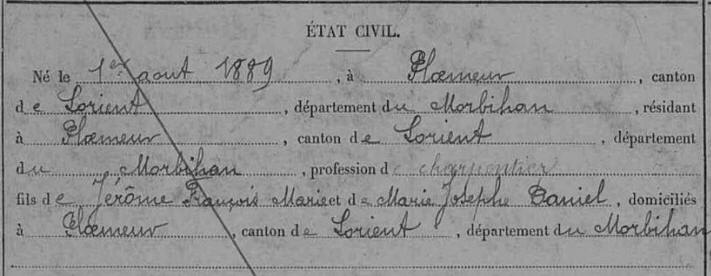 ÉTAT CIVIL.
Né le 1er aout 1889, à Plœmeur, canton
de Lorient, département du Morbihan, résidant
à Plœmeur, canton de Lorient, département
du Morbihan, profession de charpentier
fils de Jérôme François Marie et de Marie Josephe Daniel, domiciliés
à Plœmeur, canton de Lorient, département du Morbihan